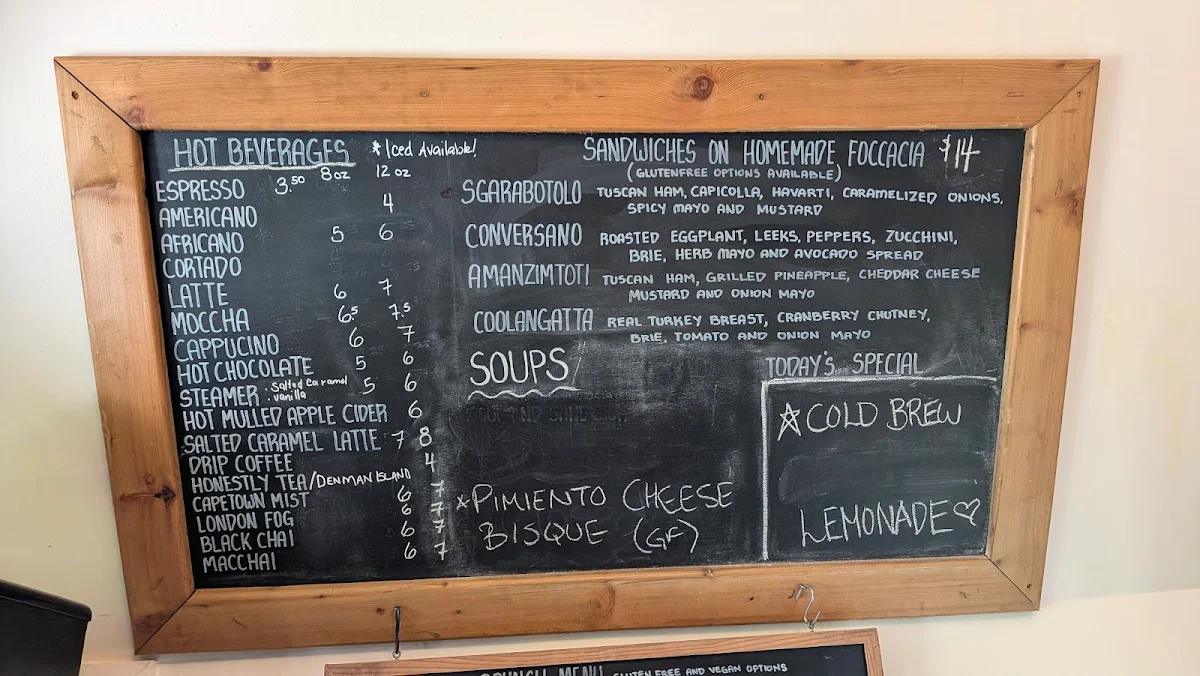 HOT BEVERAGES * Iced Available!
8oz 12 oz
ESPRESSO 3.50
AMERICANO 4
AFRICANO 5 6
CORTADO
LATTE 6 7
MOCCHA 6.5 7.5
CAPPUCINO 6 7
HOT CHOCOLATE 5 6
STEAMER · Salted Caramel 5 6
· vanilla
HOT MULLED APPLE CIDER 6
SALTED CARAMEL LATTE 7 8
DRIP COFFEE 4
HONESTLY TEA/DENMAN ISLAND
CAPETOWN MIST 6 7
LONDON FOG 6 7
BLACK CHAI 6 7
MACCHAI 6 7
SANDWICHES ON HOMEMADE FOCCACIA $14
(GLUTENFREE OPTIONS AVAILABLE)
SGARABOTOLO TUSCAN HAM, CAPICOLLA, HAVARTI, CARAMELIZED ONIONS,
SPICY MAYO AND MUSTARD
CONVERSANO ROASTED EGGPLANT, LEEKS, PEPPERS, ZUCCHINI,
BRIE, HERB MAYO AND AVOCADO SPREAD
AMANZIMTOTI TUSCAN HAM, GRILLED PINEAPPLE, CHEDDAR CHEESE
MUSTARD AND ONION MAYO
COOLANGATTA REAL TURKEY BREAST, CRANBERRY CHUTNEY,
BRIE, TOMATO AND ONION MAYO
SOUPS
* PIMIENTO CHEESE
BISQUE (GF)
TODAY'S SPECIAL
☆ COLD BREW
LEMONADE ♡
MENU GLUTEN FREE AND VEGAN OPTIONS